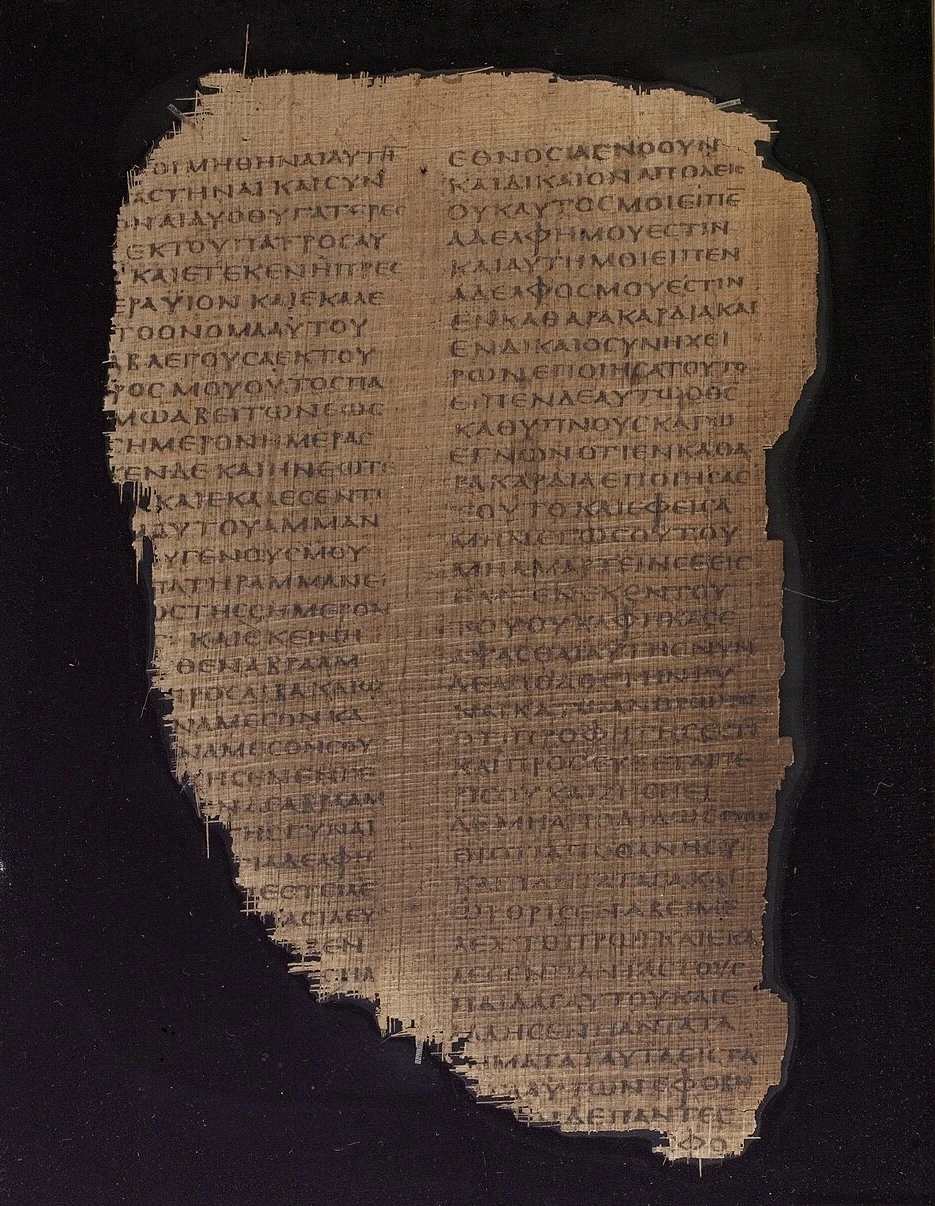 ΟΙΜΗΘΗΝΑΙΑΥΤΗ
ΑCΤΗΝΑΙΚΑΙCΥΝ
ΝΑΙΔΥΟΘΥΓΑΤΕΡΕC
ΕΚΤΟΥΠΑΤΡΟCΑΥ
ΚΑΙΕΤΕΚΕΝΗΠΡΕC
ΕΡΑΥΙΟΝΚΑΙΕΚΑΛΕ
ΤΟΟΝΟΜΑΑΥΤΟΥ
ΑΒΛΕΓΟΥCΑΕΚΤΟΥ
ΡΟCΜΟΥΟΥΤΟCΠΑ
ΜΩΑΒΕΙΤΩΝΕΩC
CΗΜΕΡΟΝΗΜΕΡΑC
ΤΕΝΔΕΚΑΙΗΝΕΩΤΕ
ΚΑΙΕΚΑΛΕCΕΝΤ
ΑΥΤΟΥΑΜΜΑΝ
ΥΓΕΝΟΥCΜΟΥ
ΠΑΤΗΡΑΜΜΑΝΕΙ
ΟCΤΗCCΗΜΕΡΟΝ
ΚΑΙΕΚΕΙΝΗ
ΘΕΝΑΒΡΑΑΜ
ΠΡΟCΛΙΒΑΚΑΙΩ
ΝΑΜΕCΟΝΚΑ
ΝΑΜΕCΟΝCΟΥ
ΚΗCΕΝΕΝ
ΝΔΕΑΒΡΑΑΜ
ΤΗCΓΥΝΑΙ
ΙΑΔΕΛΦΗ
ΕCΤΕΙΛΕ
ΑCΙΛΕΥ
ΞΕΝ
CΗΛ
ΕΘΝΟCΑΓΝΟΟΥΝ
ΚΑΙΔΙΚΑΙΟΝΑΠΟΛΕΙC
ΟΥΚΑΥΤΟCΜΟΙΕΙΠΕ
ΑΔΕΛΦΗΜΟΥΕCΤΙΝ
ΚΑΙΑΥΤΗΜΟΙΕΙΠΕΝ
ΑΔΕΛΦΟCΜΟΥΕCΤΙΝ
ΕΝΚΑΘΑΡΑΚΑΡΔΙΑΚΑΙ
ΕΝΔΙΚΑΙΟCΥΝΗΧΕΙ
ΡΩΝΕΠΟΙΗCΑΤΟΥΤΟ
ΕΙΠΕΝΔΕΑΥΤΩΟΘC
ΚΑΘΥΠΝΟΥCΚΑΓΩ
ΕΓΝΩΝΟΤΙΕΝΚΑΘΑ
ΡΑΚΑΡΔΙΑΕΠΟΙΗCΑC
ΤΟΥΤΟΚΑΙΕΦΕΙCΑ
ΜΗΝΕΓΩCΟΥΤΟΥ
ΜΗΑΜΑΡΤΕΙΝCΕΕΙC
ΕΜΕΕΝΕΚΕΝΤΟΥ
ΤΟΥΟΥΚΑΦΗΚΑCΕ
ΑΨΑCΘΑΙΑΥΤΗCΝΥΝ
ΔΕΑΠΟΔΟCΤΗΝΓΥ
ΝΑΙΚΑΤΩΑΝΘΡΩΠΩ
ΟΤΙΠΡΟΦΗΤΗCΕCΤΙ
ΚΑΙΠΡΟCΕΥΞΕΤΑΙΠΕ
ΡΙCΟΥΚΑΙΖΗCΗΕΙ
ΔΕΜΗΑΠΟΔΙΔΩC
ΟΤΙΑΠΟΘΑΝΗCΥ
ΚΑΙ
ΩΡΘΡΙCΕΝΑΒΕΙΜΕ
ΛΕΧΤΩΠΡΩΙΚΑΙΕΚΑ
ΛΕCΕΝΠΑΝΤΑCΤΟΥC
ΠΑΙΔΑCΑΥΤΟΥΚΑΙΕ
ΛΑΛΗCΕΝΠΑΝΤΑΤΑ
ΡΗΜΑΤΑΤΑΥΤΑΕΙCΤΑ
ΑΥΤΩΝΕΦΟΒΗ
ΔΕΠΑΝΤΕC
ΦΟ